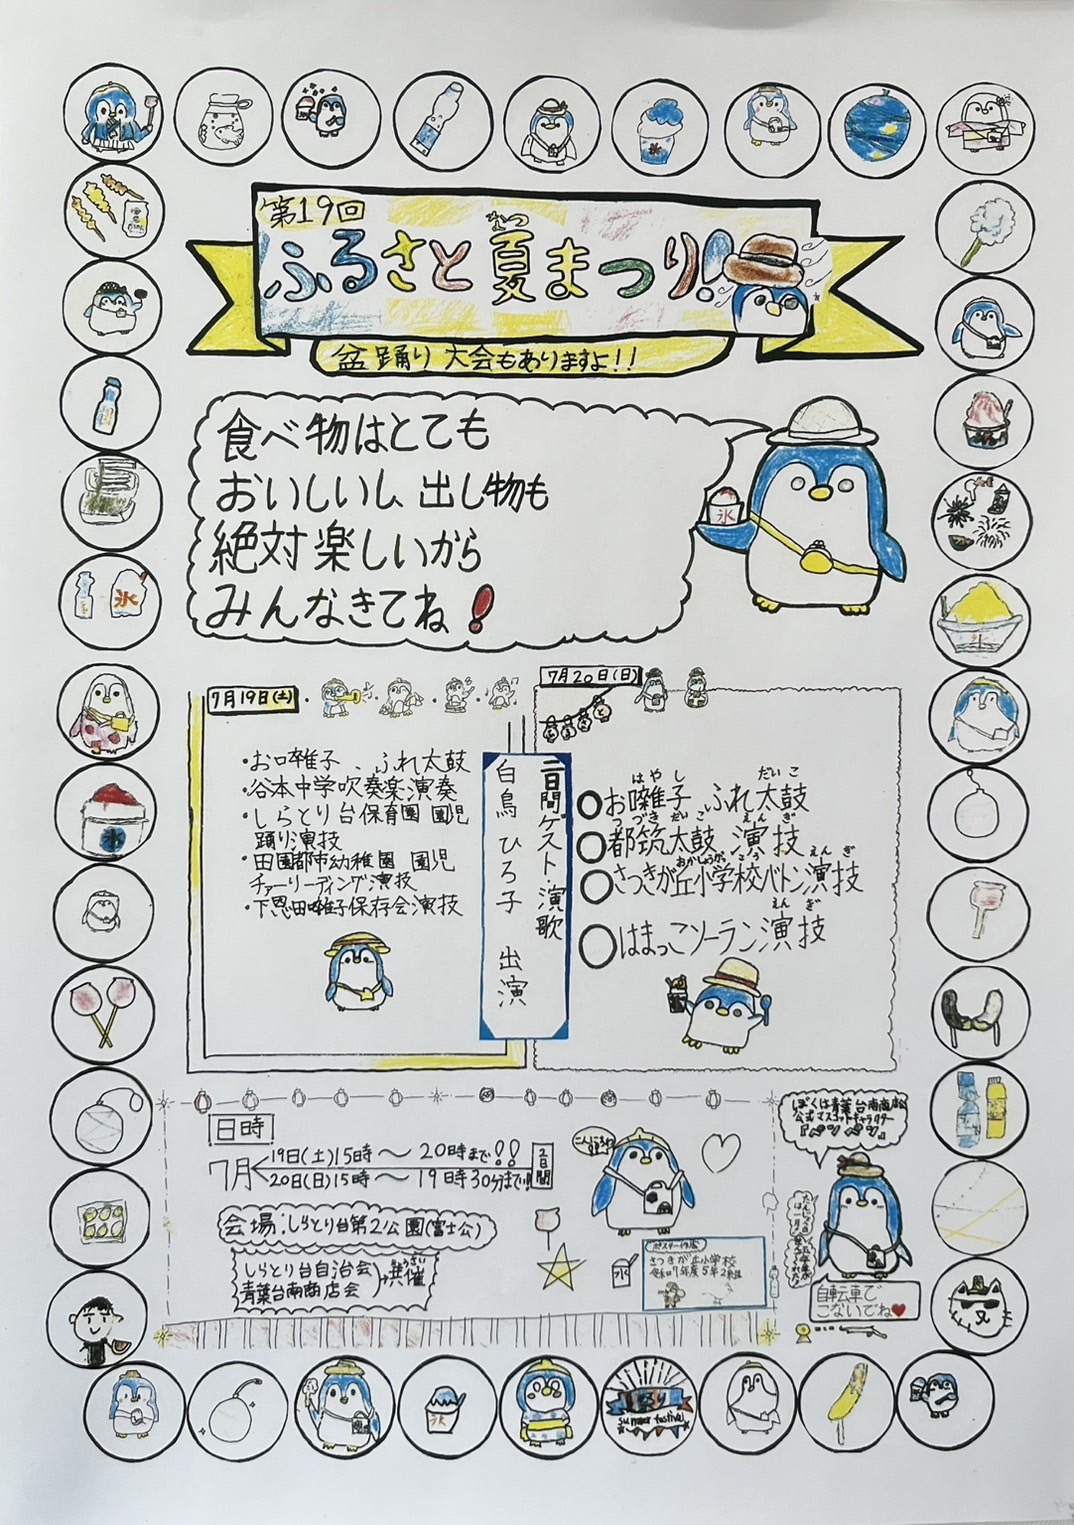 第19回
ふるさと夏まつり!
なつ
盆踊り大会もありますよ!!
食べ物はとても
おいしいし、出し物も
絶対楽しいから
みんなきてね!
氷
7月19日(土)
・お囃子、ふれ太鼓
・谷本中学吹奏楽演奏
・しらとり台保育園 園児
踊り演技
・田園都市幼稚園 園児
チアーリーディング演技
・下恩田囃子保存会演技
二日間ゲスト・演歌
白鳥 ひろ子 出演
7月20日(日)
はやし だいこ
お囃子 ふれ太鼓
つづきだいこ えんぎ
都筑太鼓 演技
おかしょうがっこう えんぎ
さつきが丘小学校バトン演技
えんぎ
はまっこソーラン演技
日時
7月
19日(土)15時〜20時まで!!
20日(日)15時〜19時30分まで!!
2日間
会場:しらとり台第2公園(富士公)
しらとり台自治会
青葉台南商店会
共催
きょうさい
ポスター作成
さつきが丘小学校
令和7年度5年2組
氷
ぼくは青葉台南商店会
公式マスコットキャラクター
『ペン ペン』
自転車で
こないでね
氷
氷
氷
祭り
summer festival